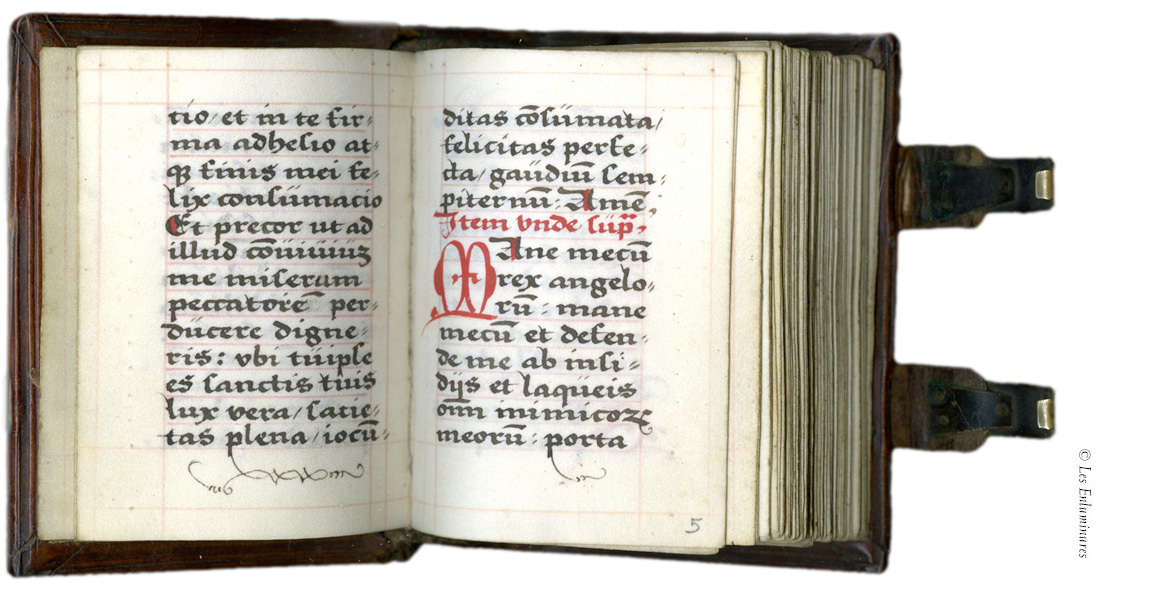 tio / et in te fir⸗
ma adhesio at⸗
qꝫ finis mei fe⸗
lix consūmacio
Et precor ut ad
illud cōuiuiuꝫ
me miserum
peccatorē per⸗
ducere digne⸗
ris : vbi tu ipse
es sanctis tuis
lux vera / sacie⸗
tas plena / iocū⸗
ditas cōsūmata /
felicitas perfe⸗
cta / gaudiū sem⸗
piternū : Amē.
Item vnde sup̄.
MAne mecū
rex angelo⸗
rū : mane
mecū et defen⸗
de me ab insi⸗
dijs et laqueis
om̄ inimicoꝝ
meorū : porta
5
© Les Enluminures